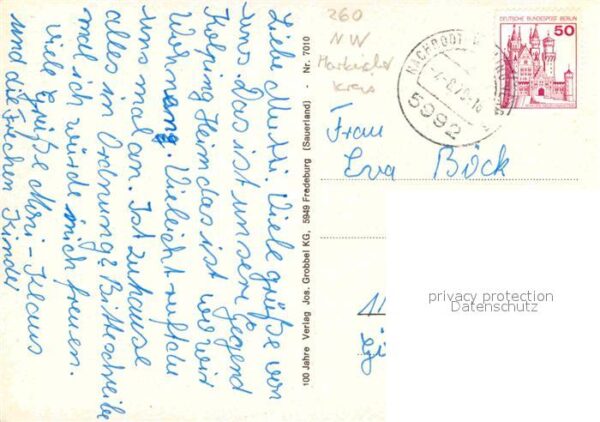 Liebe Mutti. Viele grüße von
uns. Das ist unsere Gegend
Kolping Heim das ist wo wir
Wohnen. Vieleicht rufst du
uns mal an. Ist zuhause
alles in Ordnung? Bitte schreibe
mal ich würde mich freuen.
Viele Grüße Mari - Klaus
und die frechen Kinder
100 Jahre Verlag Jos. Grobbel KG, 5949 Fredeburg (Sauerland) - Nr. 7010
260
NW
Märkischer
Kreis
DEUTSCHE BUNDESPOST BERLIN
50
NACHRODT-
5992
Frau
Eva Böck
privacy protection
Datenschutz